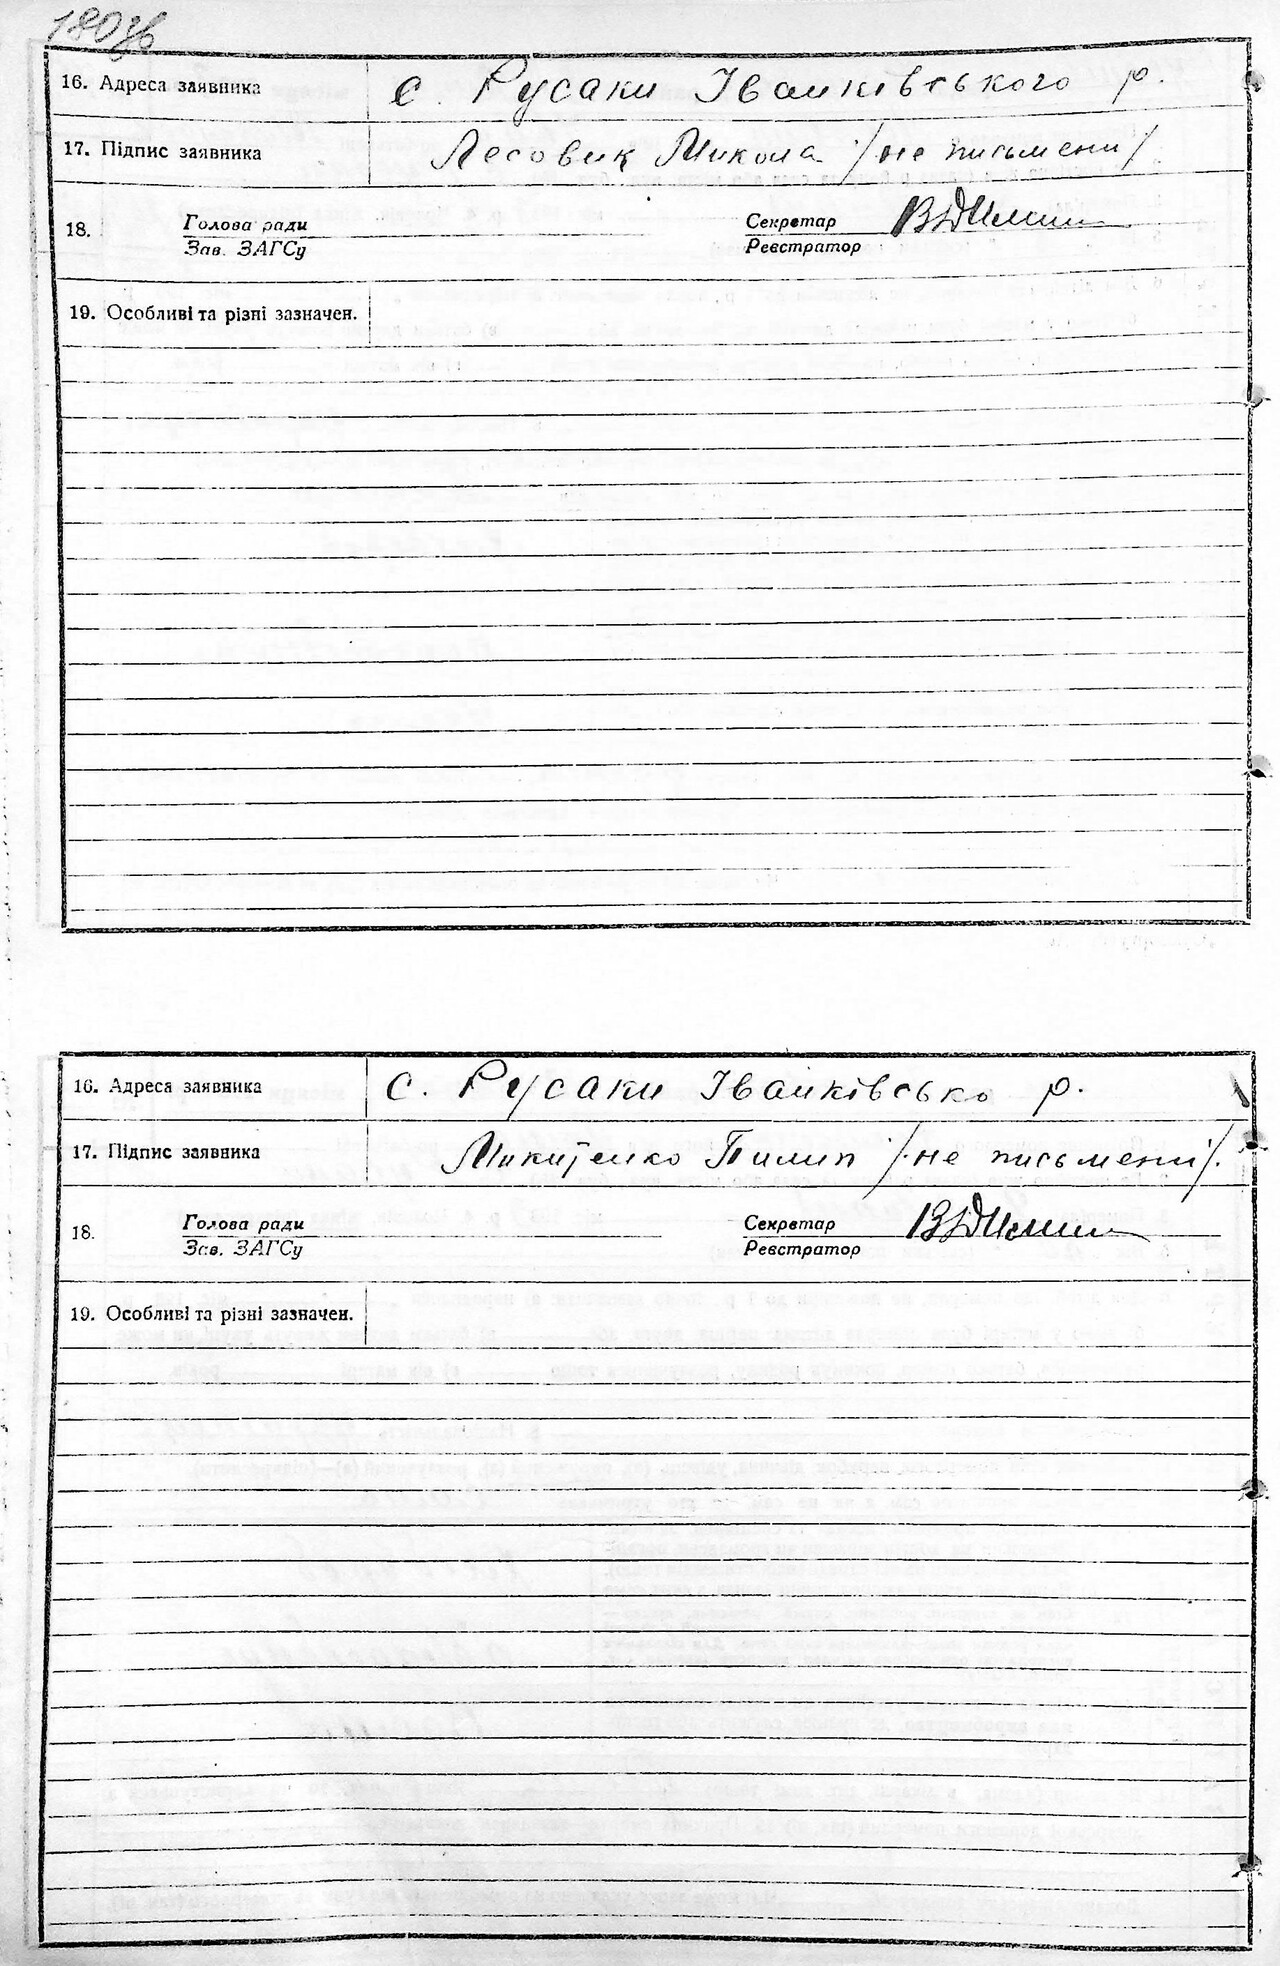 180зв
16. Адреса заявника с. Русаки Іванківського р.
17. Підпис заявника Лесовик Микола /не письмени/
18. Голова ради Секретар
Зав. ЗАГСу Реєстратор
19. Особливі та різні зазначен.
16. Адреса заявника с. Русаки Іванківсько р.
17. Підпис заявника Микитенко Пилип /не письмени/.
18. Голова ради Секретар
Зав. ЗАГСу Реєстратор
19. Особливі та різні зазначен.